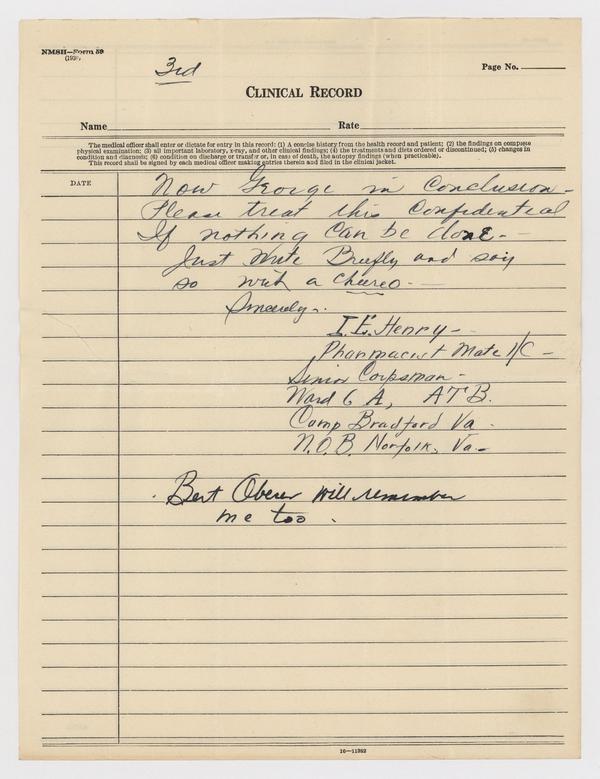 NMSH—Form 59
3rd
Page No.
CLINICAL RECORD
Name Rate
The medical officer shall enter or dictate for entry in this record: (1) A concise history from the health record and patient; (2) the findings on complete
physical examination; (3) all important laboratory, x-ray, and other clinical findings; (4) the treatments and diets ordered or discontinued; (5) changes in
condition and diagnosis; (6) condition on discharge or transfer or, in case of death, the autopsy findings (when practicable).
This record shall be signed by each medical officer making entries therein and filed in the clinical jacket.
DATE
Now George in Conclusion—
Please treat this Confidential
If nothing Can be done—
Just Write Briefly and say
so with a Cheereo—
Sincerely.
I.E. Henry—
Pharmacist Mate 1/C—
Senior Corpsman—
Ward 6 A, ATB.
Camp Bradford Va—
N.O.B. Norfolk, Va—
Bert Oberer will remember
me too.
16—11382